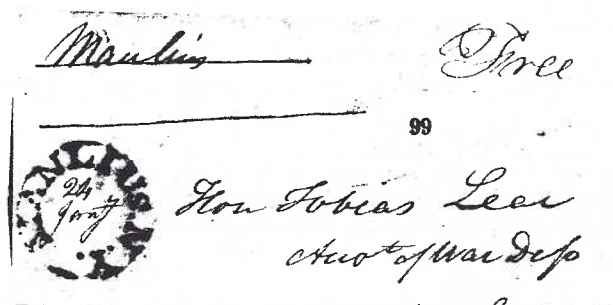 Manlius
Free
99
MANLIUS N.Y.
24
Jany
Hon Tobias Lear
Acct of War Dep